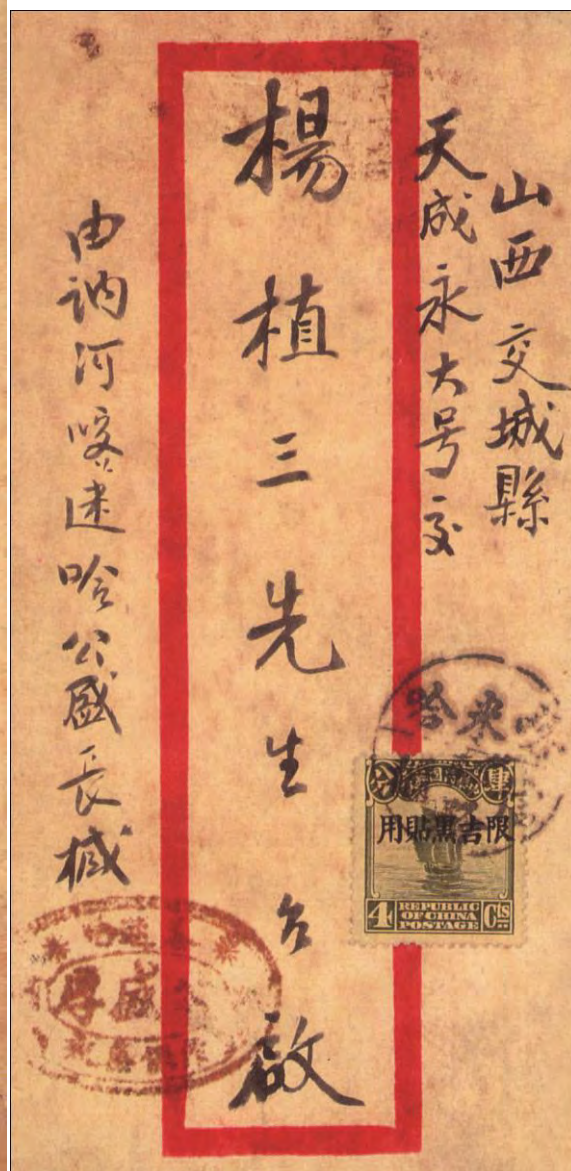 山西交城縣
天成永大号交
楊植三先生台啟
由訥河喀逨哈公盛長椷
肆分
限吉黑貼用
4 REPUBLIC OF CHINA POSTAGE Cts
盛厚